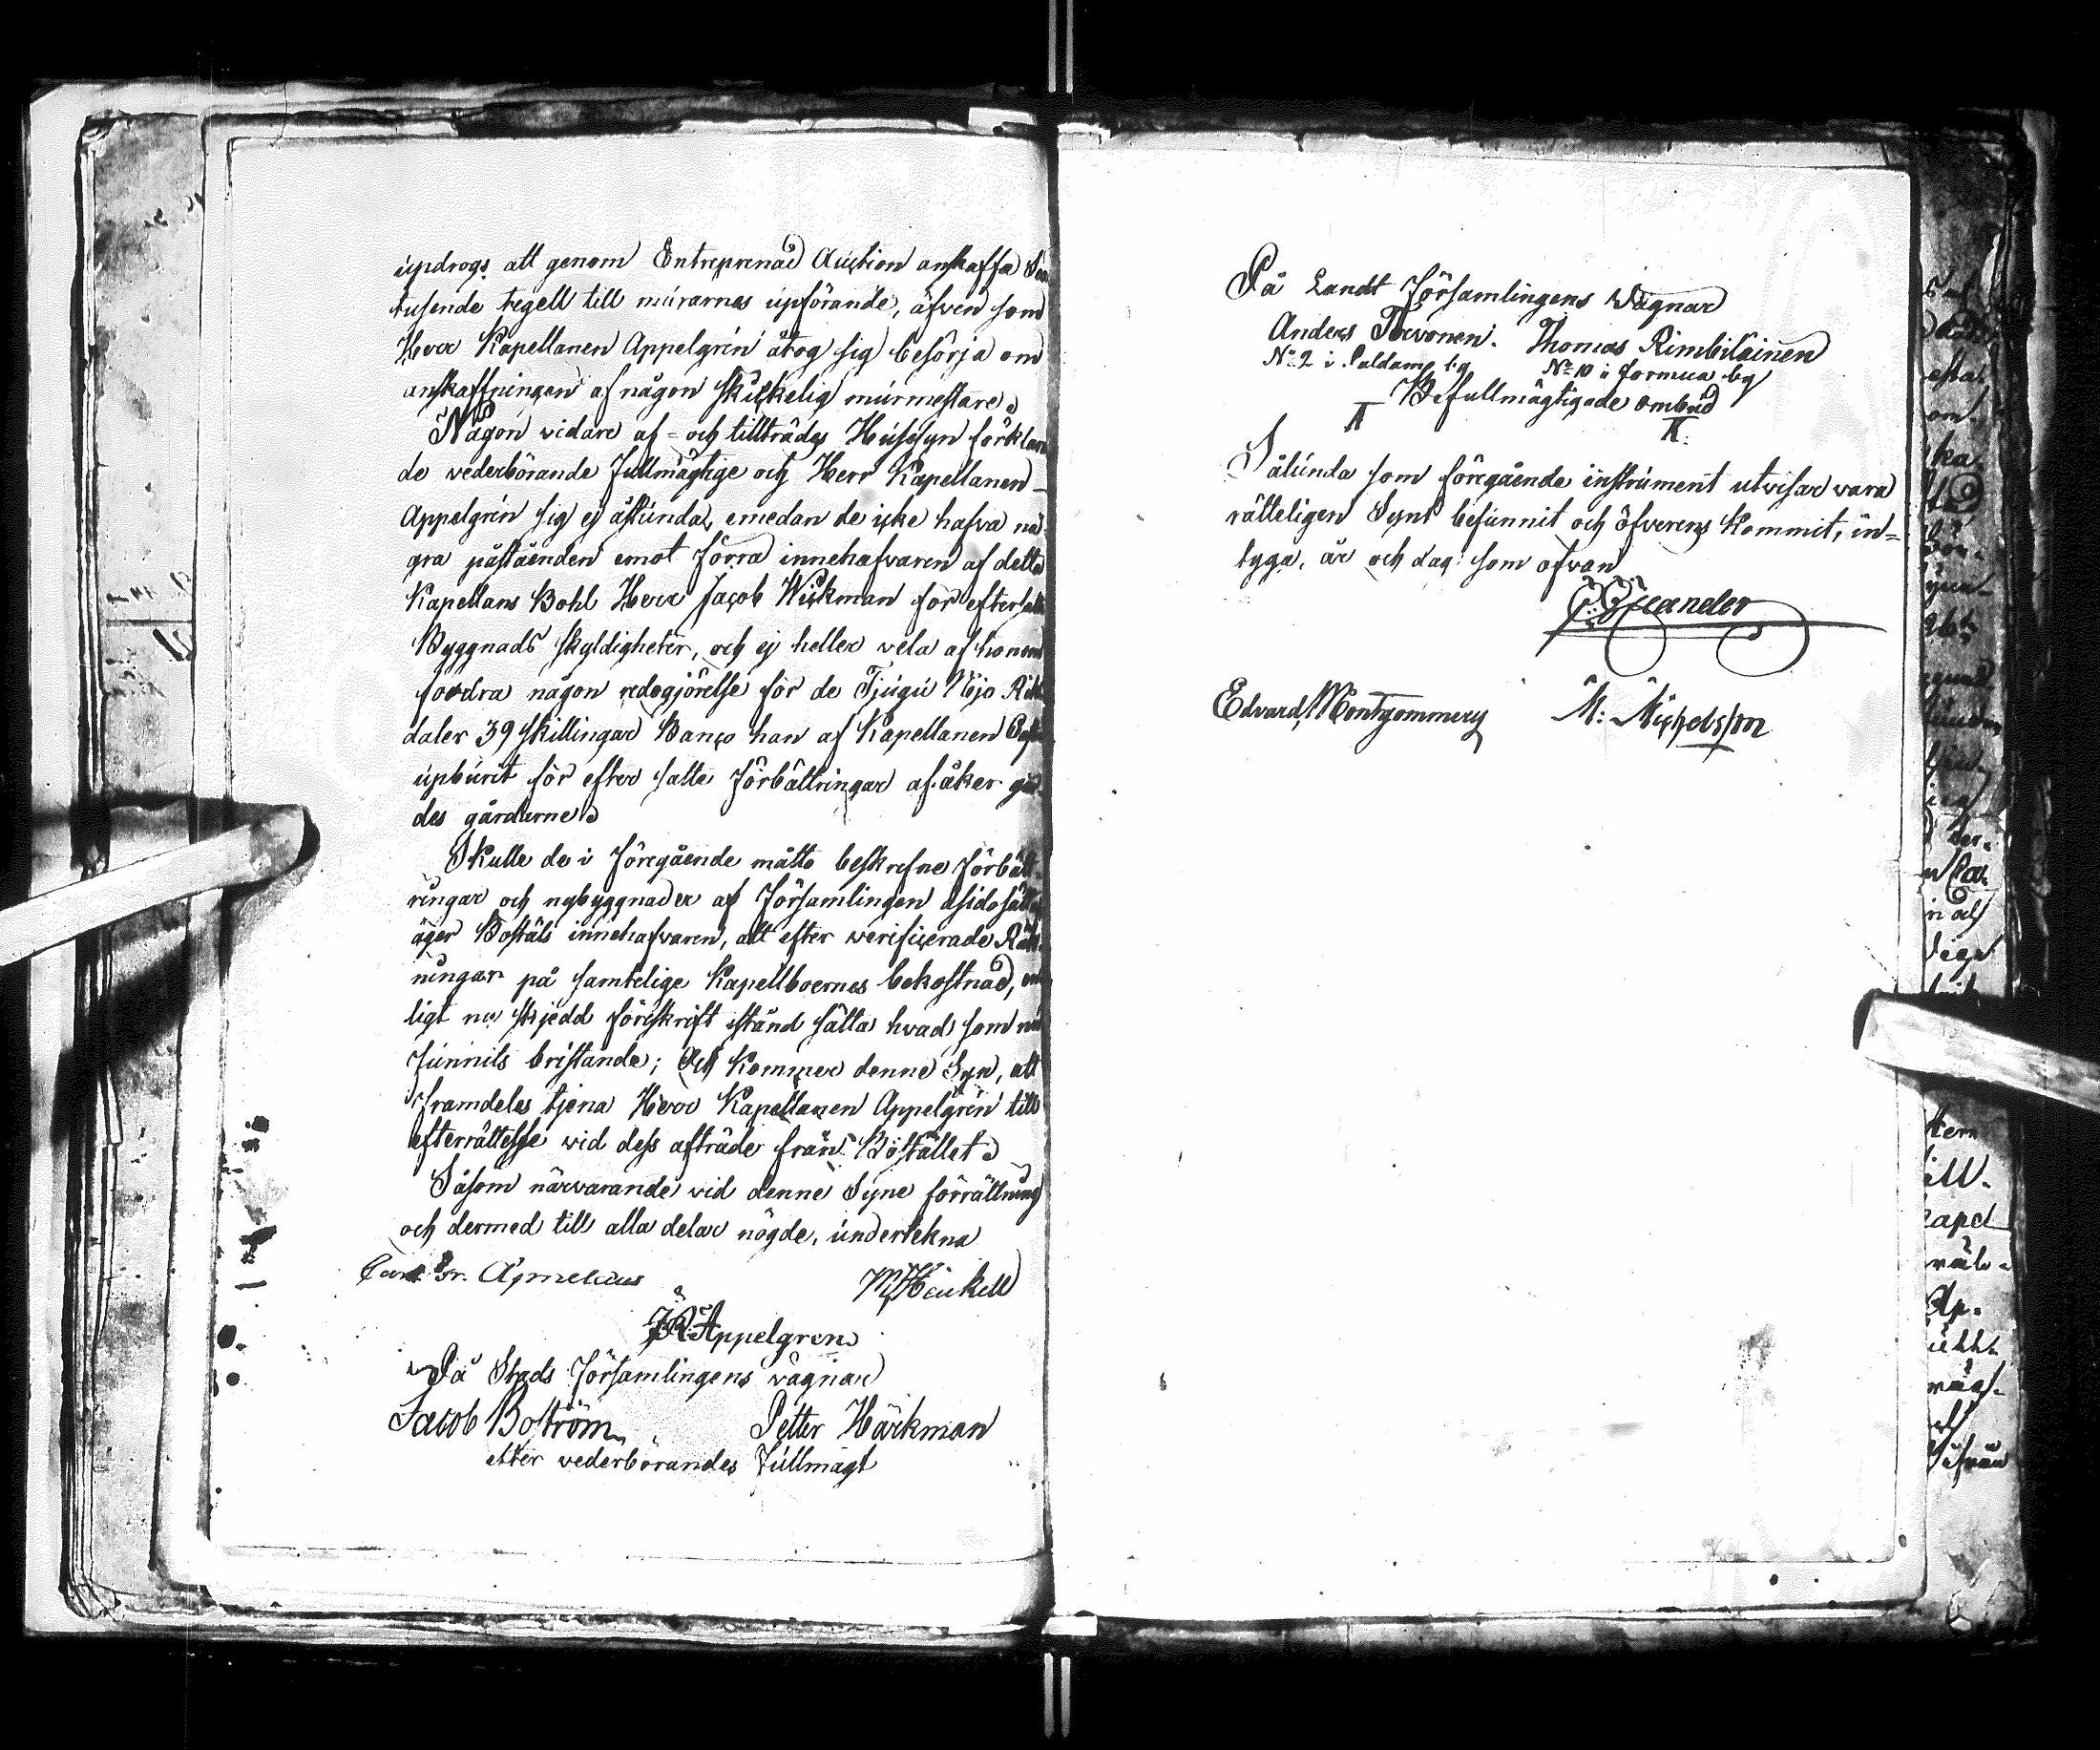 updrogs att genom Entreprenad Auction anskaffa
tusende tegell till murarnas upförande, äfven som
Herr Kapellanen Appelgrén åtog sig besörja om
anskaffningen af någon skickelig murmestare.
Någon vidare af- och tillträdes Husesyn förklara
de vederbörande Fullmägtige och Herr Kapellanen
Appelgrén sig ej åstunda, emedan de icke hafva nå
gra påståenden emot förra innehafvaren af detta
Kapellans Bohl Herr Jacob Wickman för eftersatte
Byggnads skyldigheter, och ej heller vela af honom
fordra någon redogjörelse för de Tjugu Nijo Riks
daler 39 skillingar Banco han af Kapellanen
upburit för efter satte förbättringar af åker gär
des gårdarne.
Skulle de i föregående måtto beskrefne förbätt
ringar och nybyggnader af Församlingen åsidosättas
äger Boställs innehafvaren, att efter verificerade Räk
ningar på samtelige Kapellboernes bekostnad, en
ligt nu skjedd föreskrift istånd sätta hvad som nu
funnits bristande; Och kommer denne Syn, att
framdeles tjena Herr Kapellanen Appelgrén till
efterrättelse wid dess afträde från Bostället.
Såsom närvarande vid denne Syne förrättning
och dermed till alla delar nögde, undertekna
Carl Fr. Ajmelaeus M. Heikell
J.R. Appelgren
På Stads Församlingens vägnar
Jacob Boström Petter Härkman
efter vederbörandes Fullmagt
På Landt Församlingens Wägnar
Anders Torvonen. Thomas Rimbiläinen
No 2 i Paldamo by No 10 i Jormua by
Befullmägtigade ombud
Sålunda som föregående instrument utvisar vara
rätteligen Synt befunnit och öfverens kommit, in=
tyga, år och dag som ofvan
Edvard Montgommery M: Michelsson